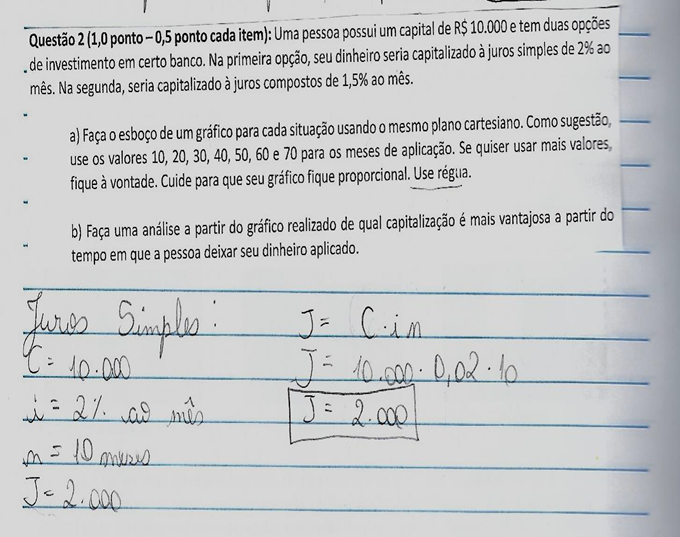 Questão 2 (1,0 ponto – 0,5 ponto cada item): Uma pessoa possui um capital de R$ 10.000 e tem duas opções
de investimento em certo banco. Na primeira opção, seu dinheiro seria capitalizado à juros simples de 2% ao
mês. Na segunda, seria capitalizado à juros compostos de 1,5% ao mês.
a) Faça o esboço de um gráfico para cada situação usando o mesmo plano cartesiano. Como sugestão,
use os valores 10, 20, 30, 40, 50, 60 e 70 para os meses de aplicação. Se quiser usar mais valores,
fique à vontade. Cuide para que seu gráfico fique proporcional. Use régua.
b) Faça uma análise a partir do gráfico realizado de qual capitalização é mais vantajosa a partir do
tempo em que a pessoa deixar seu dinheiro aplicado.
Juros Simples:
C = 10.000
i = 2% ao mês
n = 10 meses
J = 2.000
J = C.in
J = 10.000 . 0,02 . 10
J = 2.000